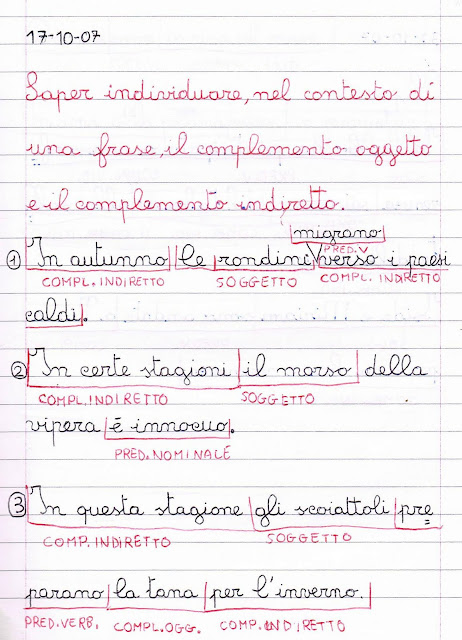 17-10-07
Saper individuare, nel contesto di
una frase, il complemento oggetto
e il complemento indiretto.
migrano
PRED.V
① In autunno le rondini verso i paesi
COMPL. INDIRETTO SOGGETTO COMPL. INDIRETTO
caldi.
② In certe stagioni il morso della
COMPL. INDIRETTO SOGGETTO
vipera é innocuo.
PRED. NOMINALE
③ In questa stagione gli scoiattoli pre
COMP. INDIRETTO SOGGETTO
parano la tana per l'inverno.
PRED. VERB. COMPL. OGG. COMP. INDIRETTO